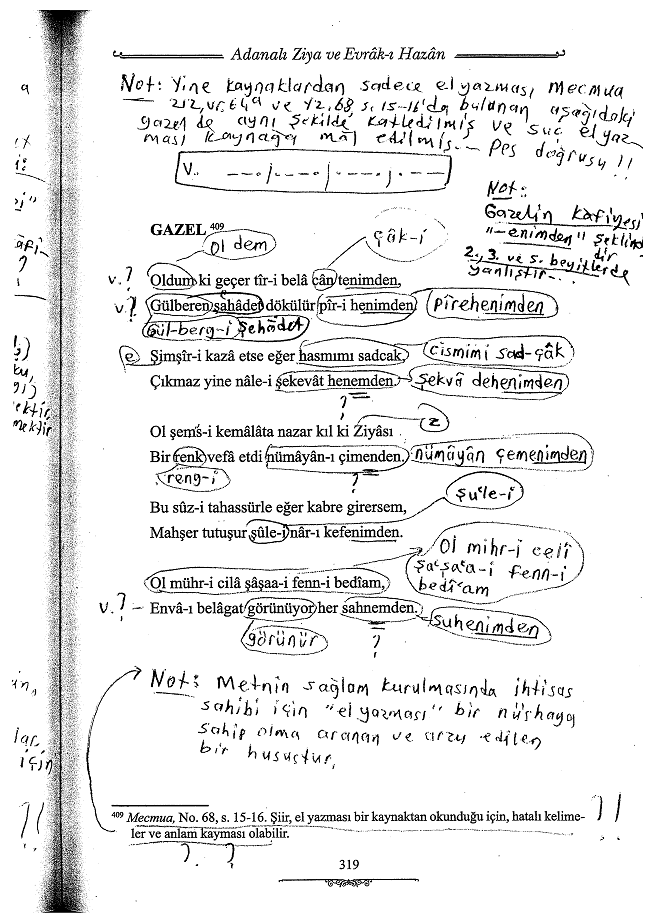 Adanalı Ziya ve Evrâk-ı Hazân
Not: Yine kaynaklardan sadece el yazması, Mecmua
212, vr. 64a ve 42, 68 s. 15-16'da bulunan aşağıdaki
gazel de aynı şekilde katledilmiş ve suç el yaz-
ması kaynağa mâl edilmiş... Pes doğrusu!!
V.. _ _ _ . / . _ _ . / . _ _ . / . _ _
Not:
Gazelin kafiyesi
"-enimden" şeklindedir
2., 3. ve 5. beyitlerde
yanlıştır...
GAZEL 409
Ol dem
çâk-i
v.? Oldum ki geçer tîr-i belâ cân tenimden,
v.? Gülberen şahâdet dökülür pîr-i henimden. pîrehenimden
Gül-berg-i şehâdet
e Şimşîr-i kazâ etse eğer hasmımı sadcak, cismimi sad-çâk
Çıkmaz yine nâle-i şekevât henemden. şekvâ dehenimden
?
z
Ol şems-i kemâlâta nazar kıl ki Ziyâsı
Bir renk vefâ etdi nümâyân-ı çimenden. nümâyân çemenimden
reng-i
?
şu'le-i
Bu sûz-i tahassürle eğer kabre girersem,
Mahşer tutuşur şûle-i nâr-ı kefenimden.
Ol mihr-i celî
şa'şa'a-i fenn-i
bedî'am
Ol mühr-i cilâ şâşaa-i fenn-i bedîam,
v.? – Envâ-ı belâgat görünüyor her sahnemden. suhenimden
görünür
?
Not: Metnin sağlam kurulmasında ihtisas
sahibi için "el yazması" bir nüshaya
sahip olma aranan ve arzu edilen
bir husustur.
409 Mecmua, No. 68, s. 15-16. Şiir, el yazması bir kaynaktan okunduğu için, hatalı kelime-
ler ve anlam kayması olabilir.
?!
?. ?
319